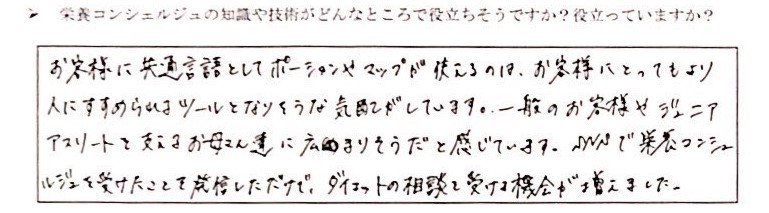 > 栄養コンシェルジュの知識や技術がどんなところで役立ちそうですか？役立っていますか？
お客様に共通言語としてポーションやマップが使えるのは、お客様にとってもより
人にすすめられるツールとなりそうな気配がしています。一般のお客様やジュニア
アスリートを支えるお母さん達に広まりそうだと感じています。SNSで栄養コンシェ
ルジュを受けたことを発信しただけで、ダイエットの相談を受ける機会が増えました。